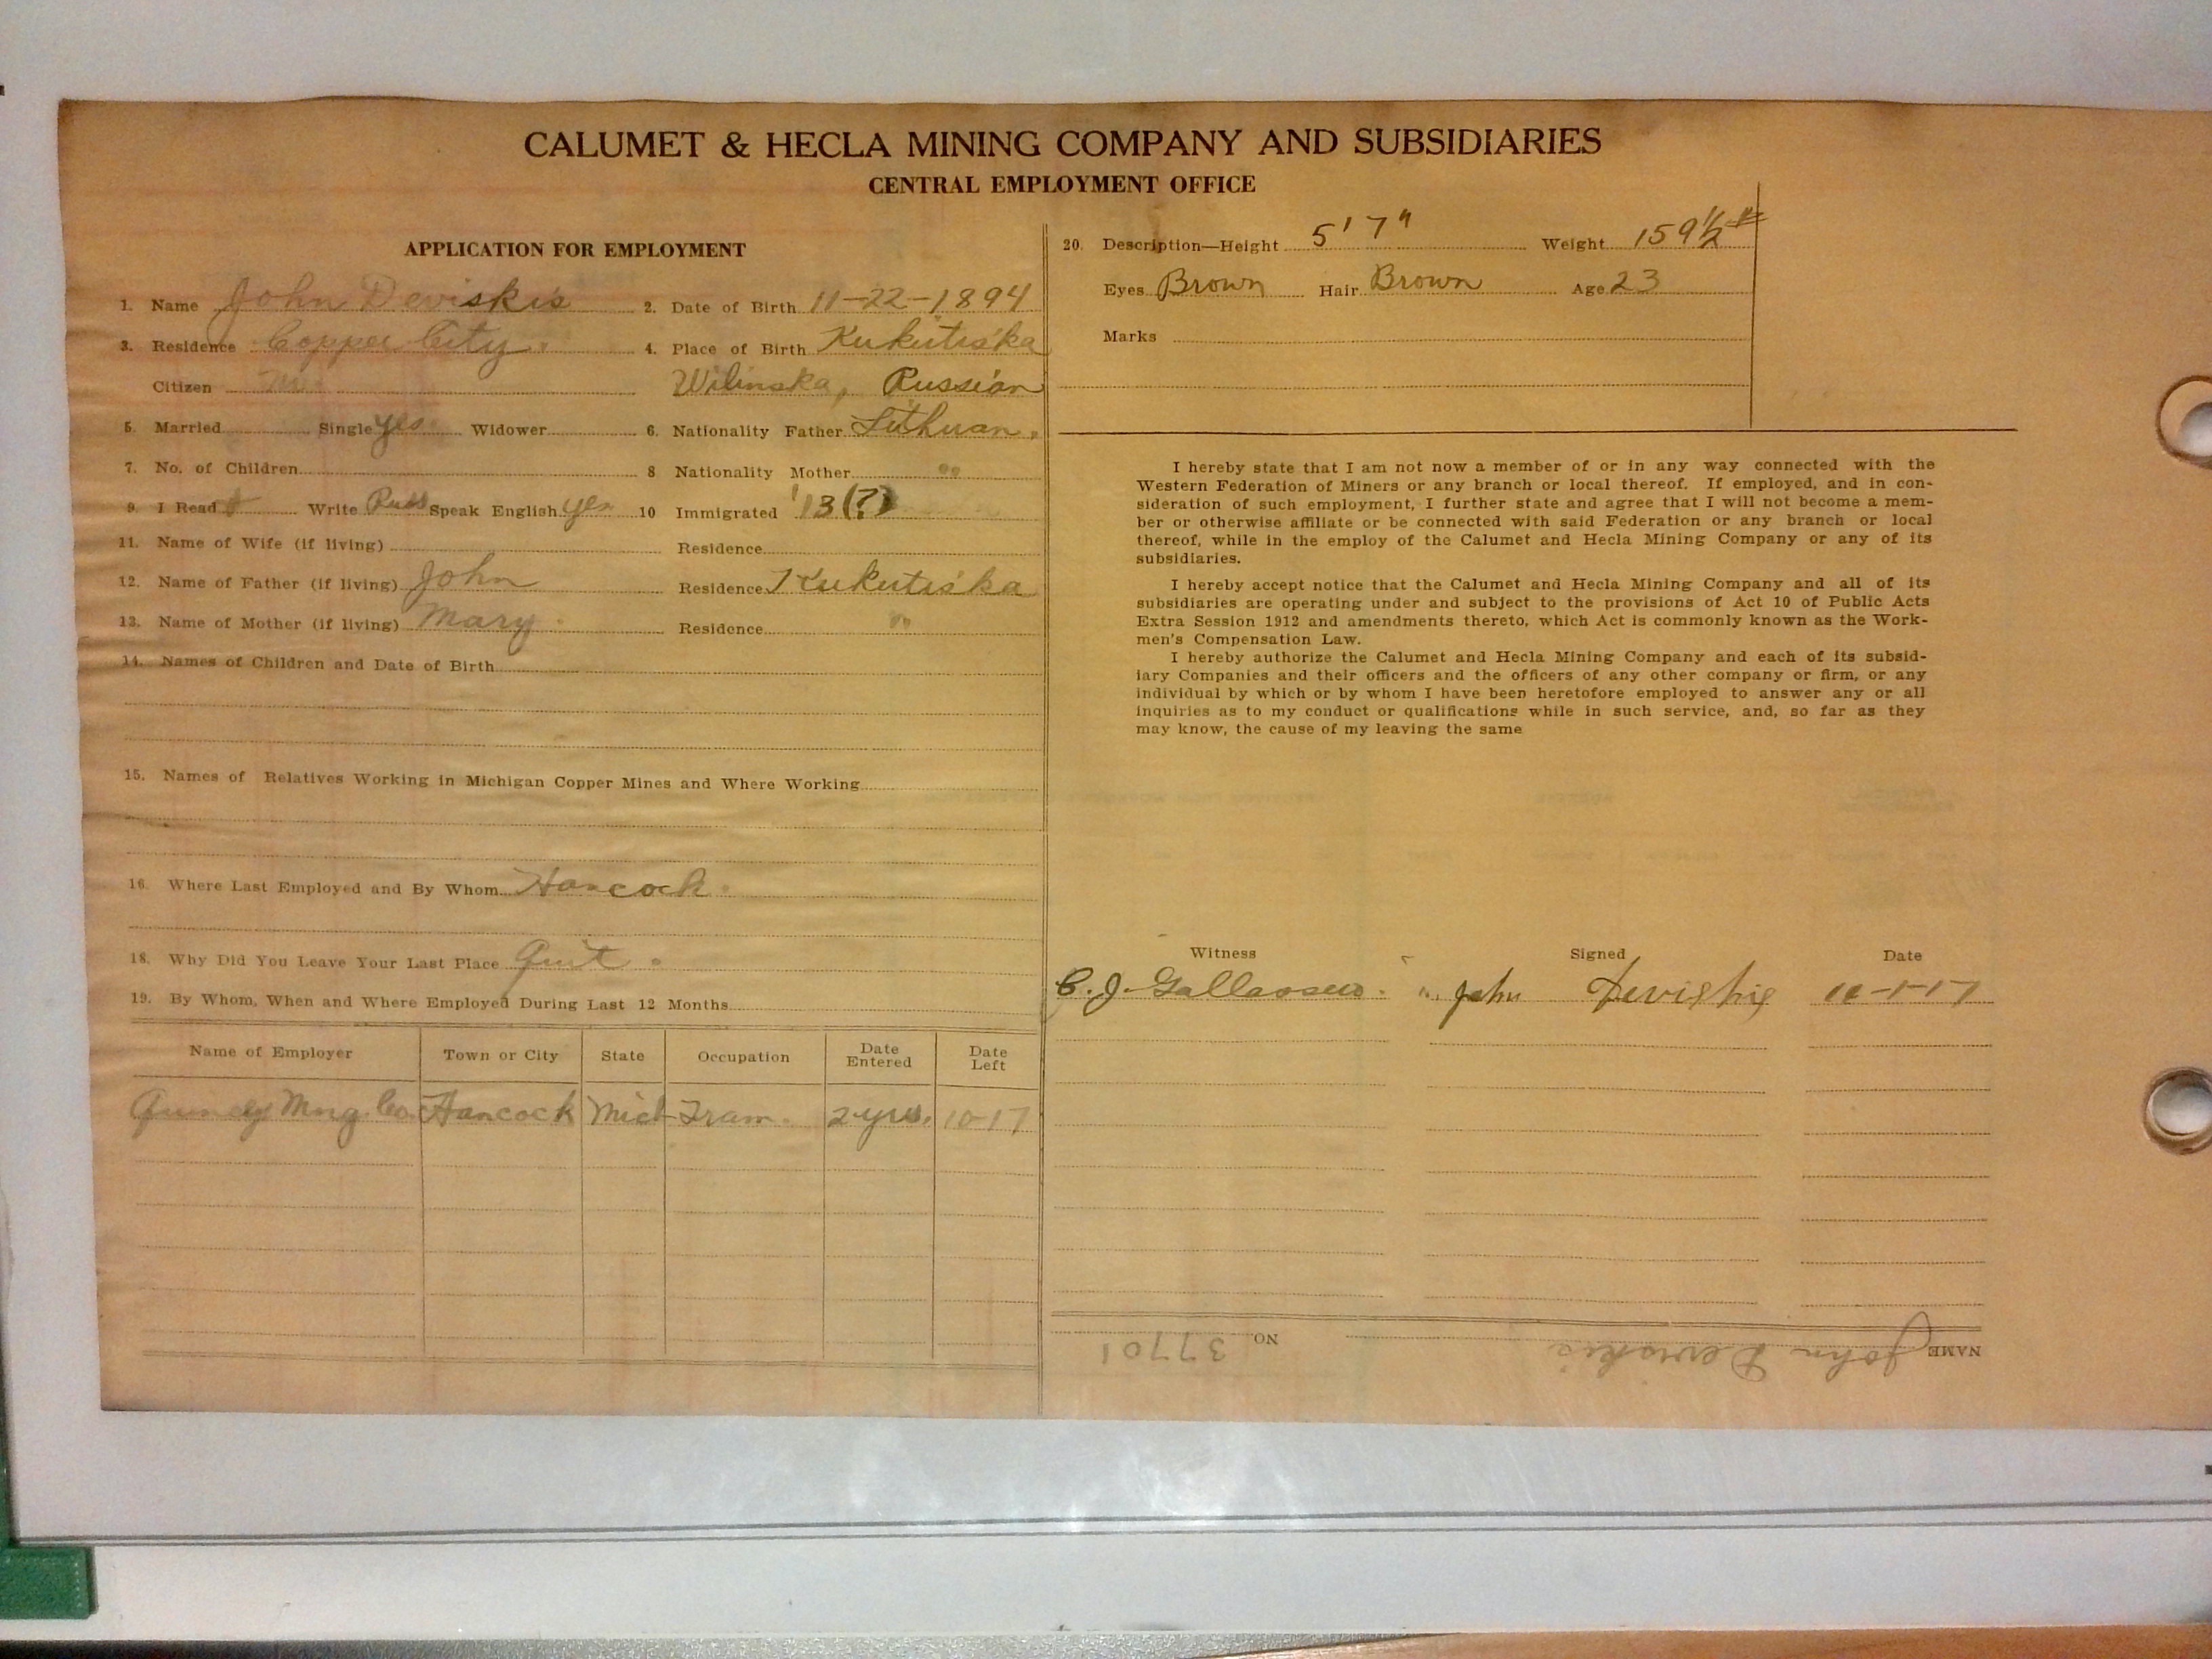 CALUMET & HECLA MINING COMPANY AND SUBSIDIARIES
CENTRAL EMPLOYMENT OFFICE
APPLICATION FOR EMPLOYMENT
1. Name John Deviskis 2. Date of Birth 11-22-1894
3. Residence Copper City. 4. Place of Birth Kukutiska
Citizen Wilinska, Russian
5. Married Single yes. Widower 6. Nationality Father Lithuan.
7. No. of Children 8 Nationality Mother "
9. I Read Write Russ Speak English yes 10 Immigrated '13(?)
11. Name of Wife (if living) Residence
12. Name of Father (if living) John Residence Kukutiska
13. Name of Mother (if living) Mary. Residence "
14. Names of Children and Date of Birth
15. Names of Relatives Working in Michigan Copper Mines and Where Working
16. Where Last Employed and By Whom Hancock.
18. Why Did You Leave Your Last Place Quit.
19. By Whom, When and Where Employed During Last 12 Months
Name of Employer Town or City State Occupation Date Entered Date Left
Quincy Mng. Co. Hancock Mich Tram. 2 yrs. 10-17
20. Description—Height 5' 7" Weight 159½ #
Eyes Brown Hair Brown Age 23
Marks
I hereby state that I am not now a member of or in any way connected with the
Western Federation of Miners or any branch or local thereof. If employed, and in con-
sideration of such employment, I further state and agree that I will not become a mem-
ber or otherwise affiliate or be connected with said Federation or any branch or local
thereof, while in the employ of the Calumet and Hecla Mining Company or any of its
subsidiaries.
I hereby accept notice that the Calumet and Hecla Mining Company and all of its
subsidiaries are operating under and subject to the provisions of Act 10 of Public Acts
Extra Session 1912 and amendments thereto, which Act is commonly known as the Work-
men's Compensation Law.
I hereby authorize the Calumet and Hecla Mining Company and each of its subsid-
iary Companies and their officers and the officers of any other company or firm, or any
individual by which or by whom I have been heretofore employed to answer any or all
inquiries as to my conduct or qualifications while in such service, and, so far as they
may know, the cause of my leaving the same
Witness Signed Date
C. J. John
NAME John Deviskis NO 37701